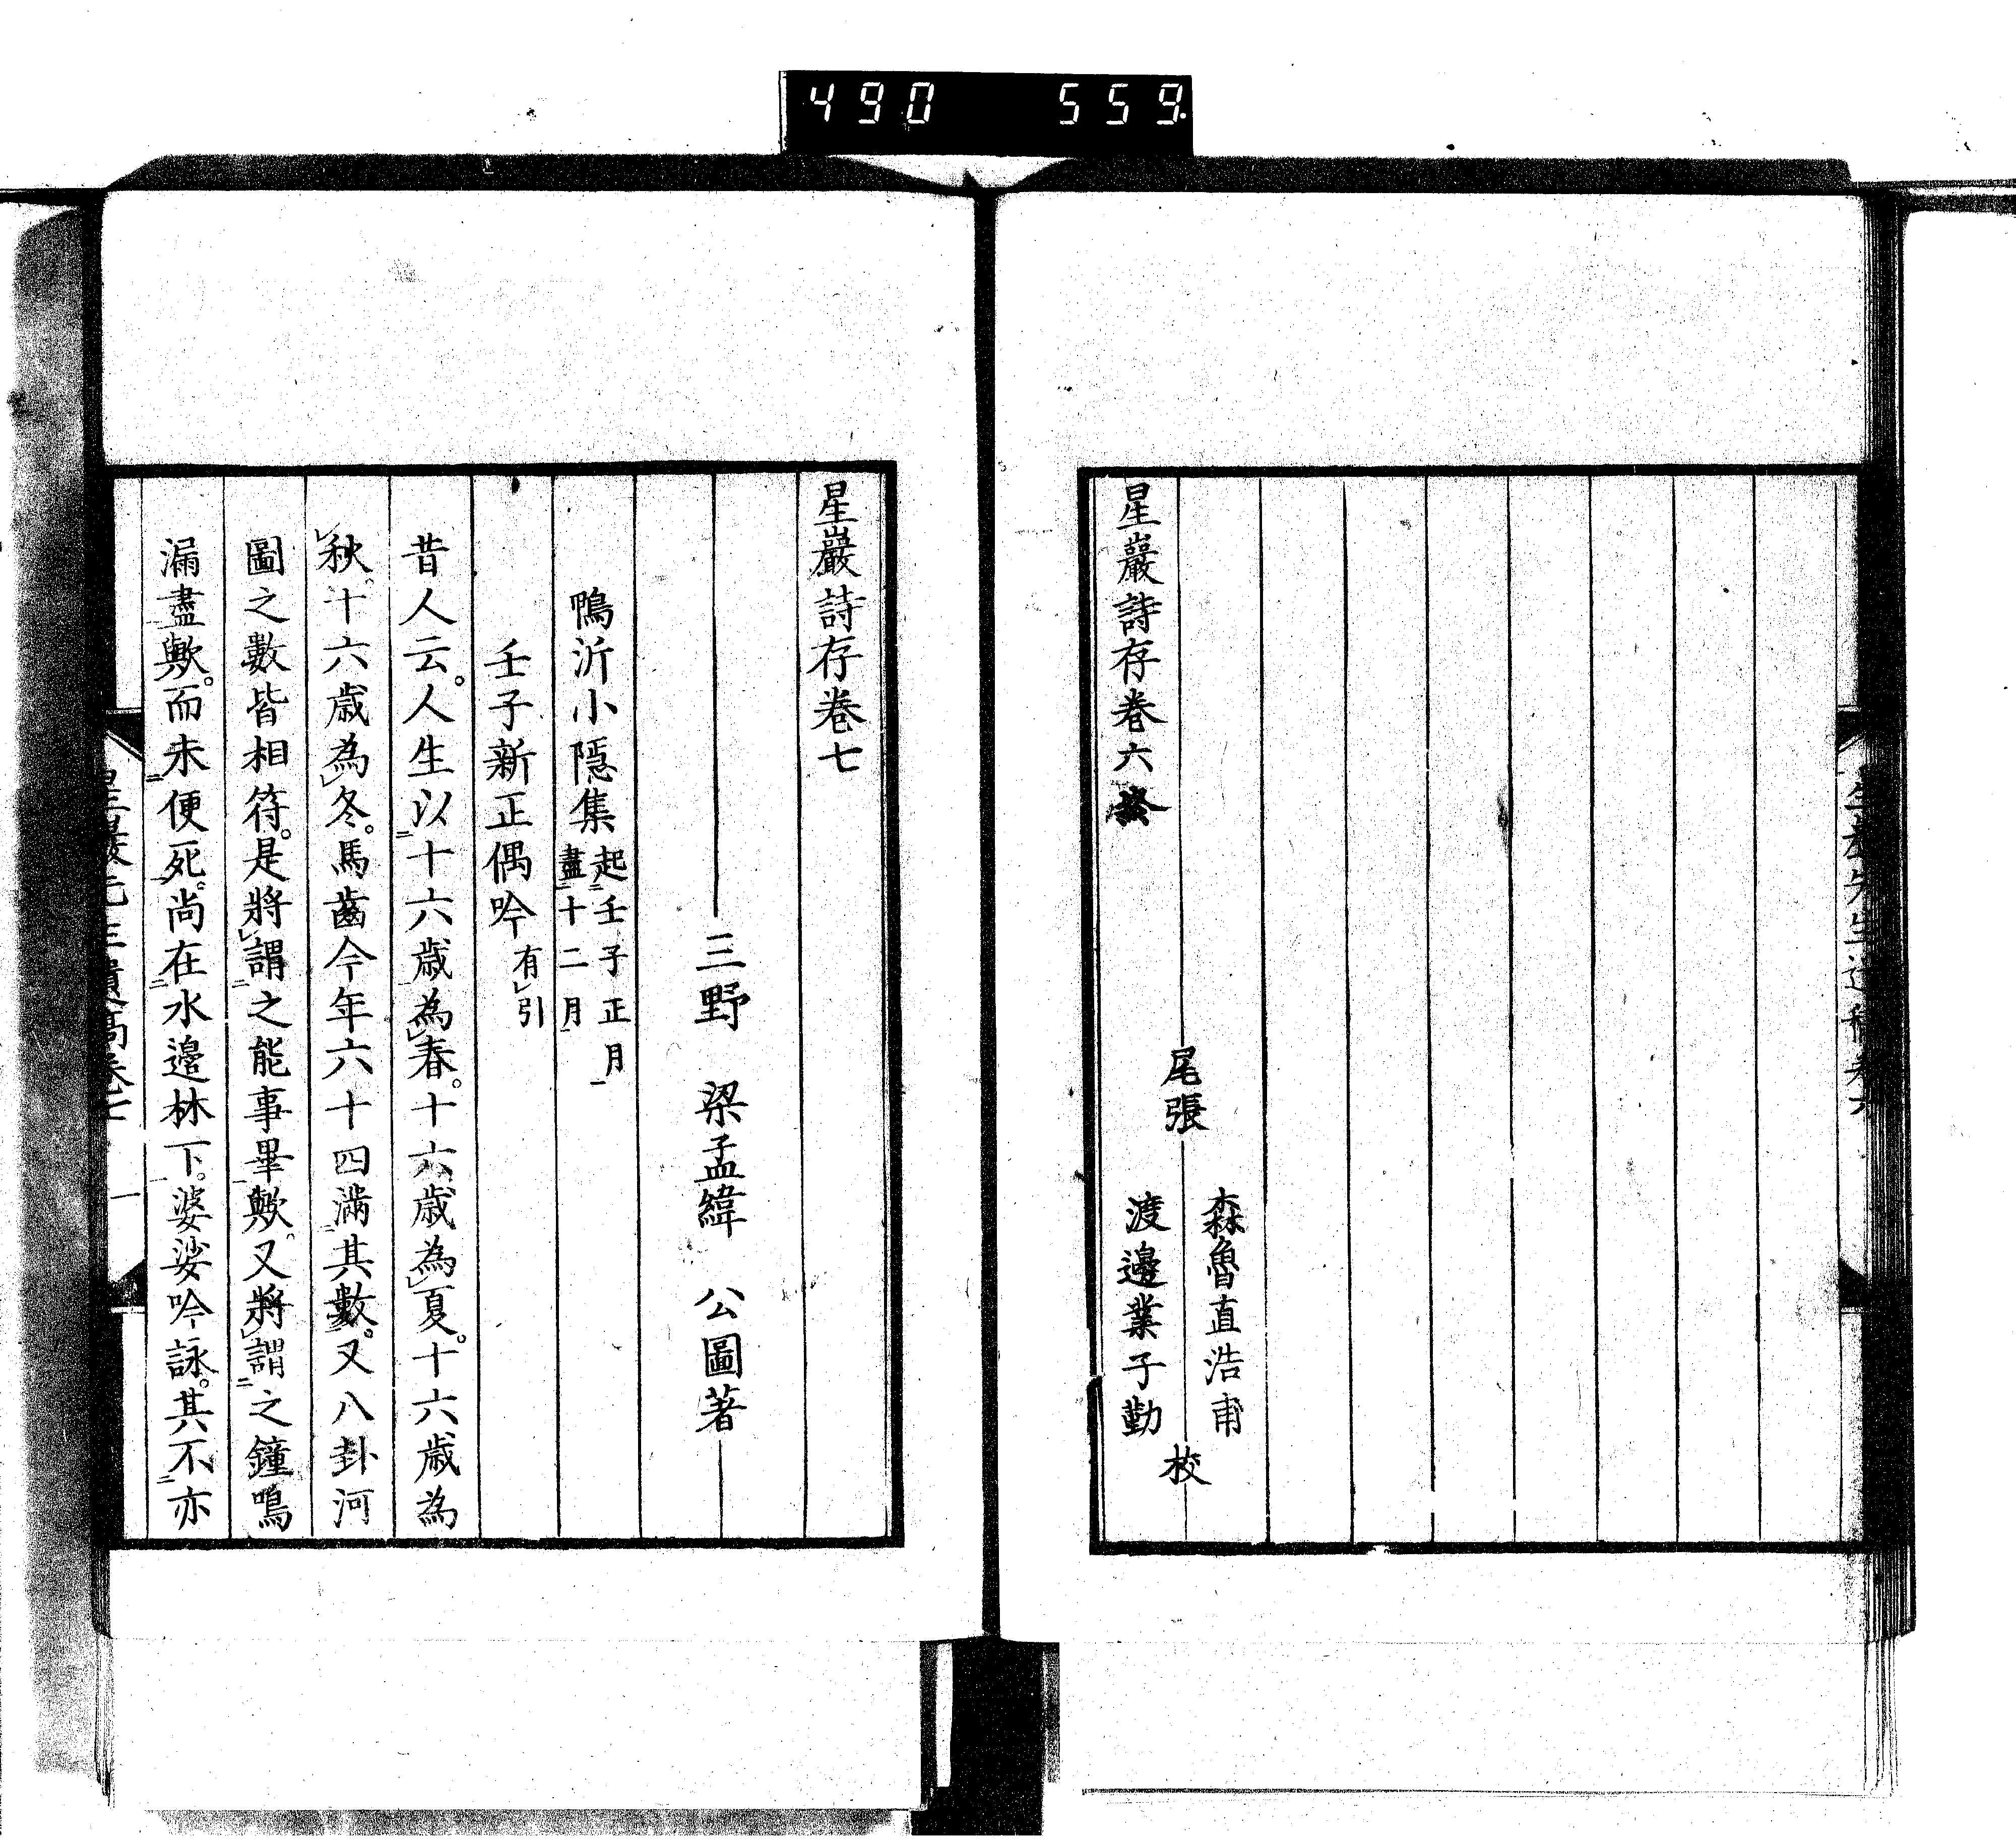 490 559
星巖先生遺稿卷六
尾張
森魯直浩甫
渡邉業子勤
校
星巖詩存卷六終
星巖詩存卷七
三野 梁孟緯 公圖著
鴨沂小隱集 起二壬子正月一 盡二十二月一
壬子新正偶吟 有レ引
昔人云。人生以二十六歲一為レ春。十六歲為レ夏。十六歲為
レ秋。十六歲為レ冬。馬齒今年六十四滿二其數一。又八卦河
圖之數皆相符。是將レ謂二之能事畢一歟。又將レ謂二之鐘鳴
漏盡一歟。而未二便死一。尚在二水邉林下一。婆娑吟詠。其不二亦
星巖先生遺稿卷七 一